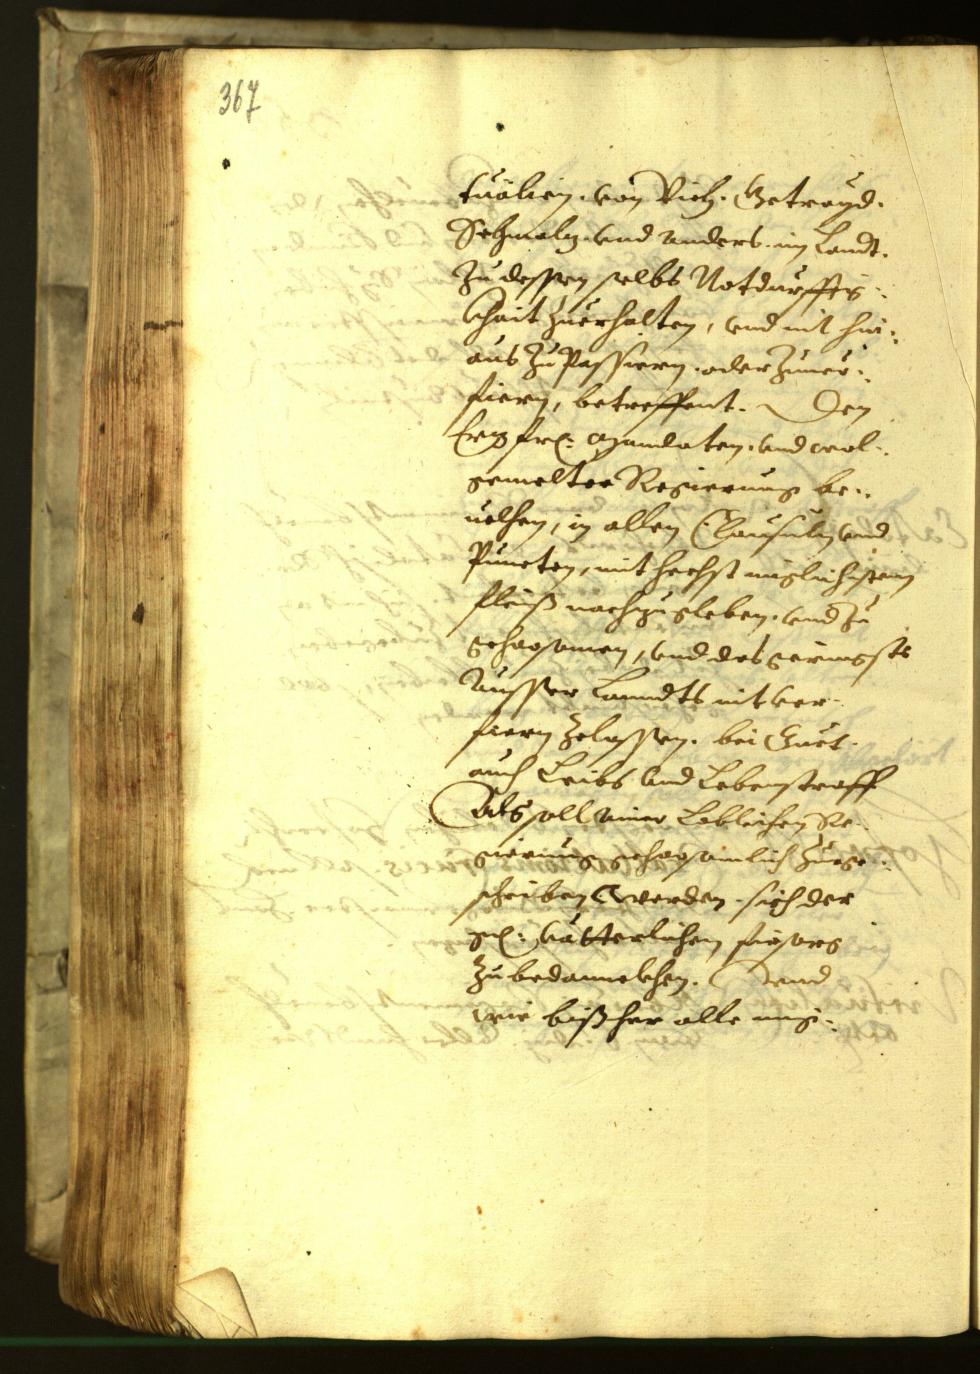 367
tualien, von Vich, Getrayd,
Schmalz, und anders, im Landt,
zu dessen selbs Notdurfftig-
khait zuerhalten, und nit hin-
aus zu Passiern, oder zuuer-
fiern, betreffent. Den
frl: Mandaten, und wol-
gemelter Regierung be-
uelhen, in allen Clausuln und
Puncten, mit hechst miglichistem
fleiß nachzugeleben, und zu
gehorsamen, und das geringste
ausser Lanndts nit ver-
fiern zelassen, bei Guet
auch Leibs und Lebenstraff
Als soll ainer Loblichen Re-
gierung gehorsamlich zuege-
schriben werden, sich der
gl: vätterlichen fürsorg
zu bedannckhen. Und
wie bißher alle mig-